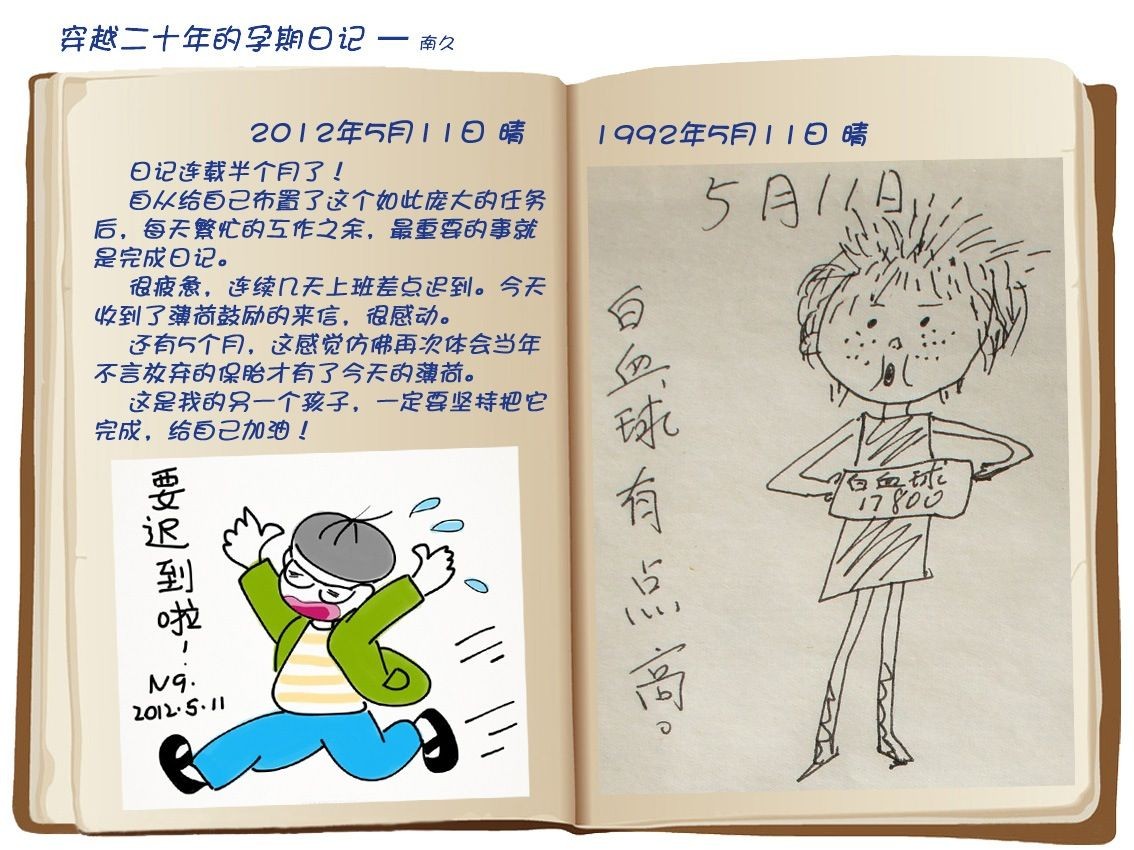 穿越二十年的孕期日记 — 南久
2012年5月11日 晴
日记连载半个月了！
自从给自己布置了这个如此庞大的任务
后，每天繁忙的工作之余，最重要的事就
是完成日记。
很疲惫，连续几天上班差点迟到。今天
收到了薄荷鼓励的来信，很感动。
还有5个月，这感觉仿佛再次体会当年
不言放弃的保胎才有了今天的薄荷。
这是我的另一个孩子，一定要坚持把它
完成，给自己加油！
要迟到啦！
N9.
2012.5.11
1992年5月11日 晴
5月11日
白血球有点高。
白血球
17800